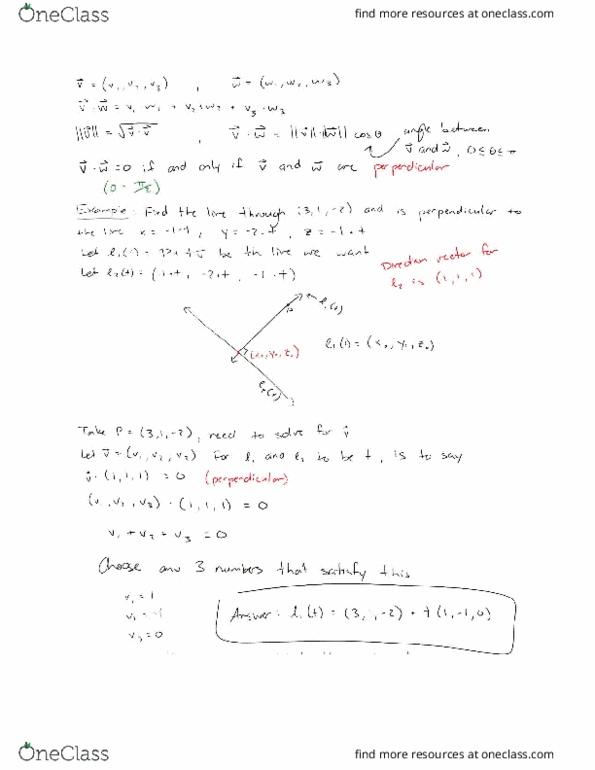 OneClass
find more resources at oneclass.com
v⃗ = (v₁, v₂, v₃) , w⃗ = (w₁, w₂, w₃)
v⃗ · w⃗ = v₁ w₁ + v₂ · w₂ + v₃ · w₃
||v⃗|| = √(v⃗ · v⃗) , v⃗ · w⃗ = ||v⃗||·||w⃗|| cosθ angle between
v⃗ and w⃗, 0 ≤ θ ≤ π
v⃗ · w⃗ = 0 if and only if v⃗ and w⃗ are perpendicular
Example: Find the line through (3, 1, -2) and is perpendicular to
the line x = -1+t, y = -2+t, z = -1+t
Let l₁(t) = P + t v⃗ be the line we want
Let l₂(t) = (-1+t, -2+t, -1+t)
Direction vector for
l₂ is (1, 1, 1)
P
l₁(t)
(x₀, y₀, z₀)
l₁(t) = (x₀, y₀, z₀)
l₂(t)
Take P = (3, 1, -2), need to solve for v⃗
Let v⃗ = (v₁, v₂, v₃) For l₁ and l₂ to be ⊥, is to say
v⃗ · (1, 1, 1) = 0 (perpendicular)
(v₁, v₂, v₃) · (1, 1, 1) = 0
v₁ + v₂ + v₃ = 0
Choose any 3 numbers that satisfy this
v₁ = 1
v₂ = -1
v₃ = 0
Answer: l₁(t) = (3, 1, -2) + t (1, -1, 0)
OneClass
find more resources at oneclass.com